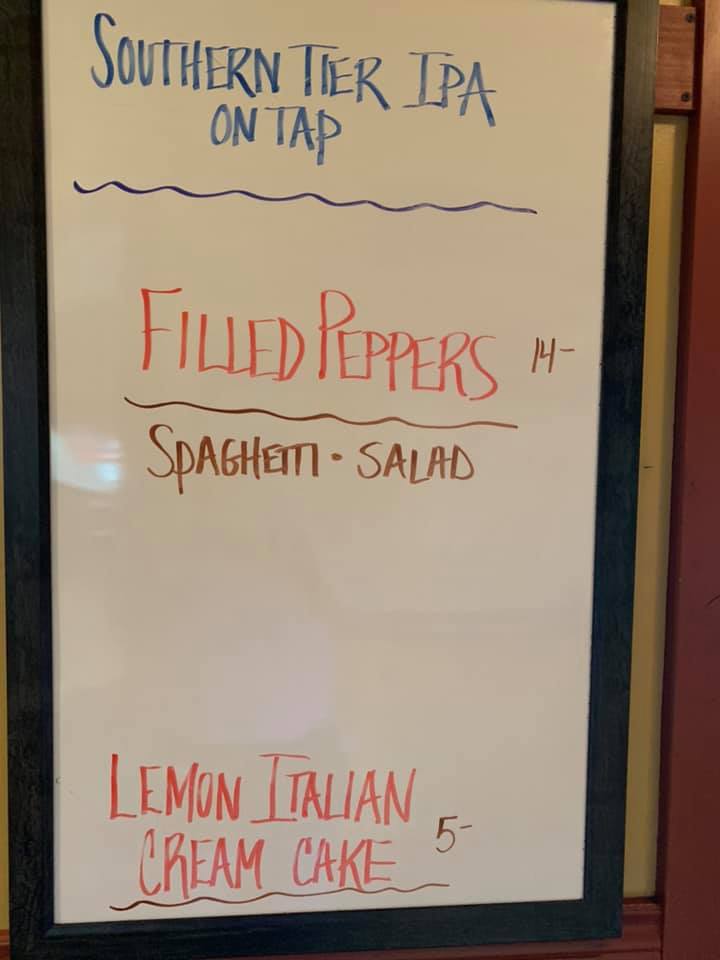 SOUTHERN TIER IPA
ON TAP
FILLED PEPPERS 14-
SPAGHETTI • SALAD
LEMON ITALIAN
CREAM CAKE 5-